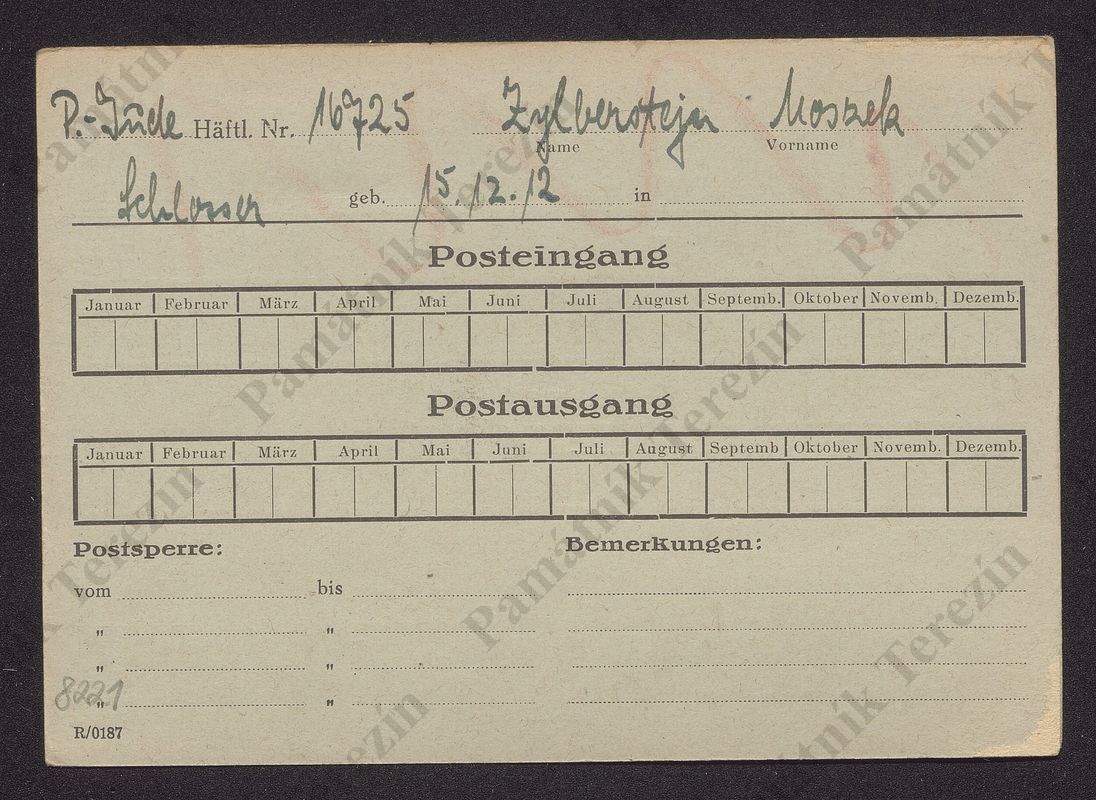 P.-Jude Häftl. Nr. 16725 Zylbersztejn Moszek
Name Vorname
Schlosser geb. 15.12.12 in
Posteingang
Januar Februar März April Mai Juni Juli August Septemb. Oktober Novemb. Dezemb.
Postausgang
Januar Februar März April Mai Juni Juli August Septemb Oktober Novemb. Dezemb.
Postsperre: Bemerkungen:
vom bis
" "
" "
8221 " "
R/0187
Památník Terezín
Památník Terezín
Památník Terezín
Památník Terezín